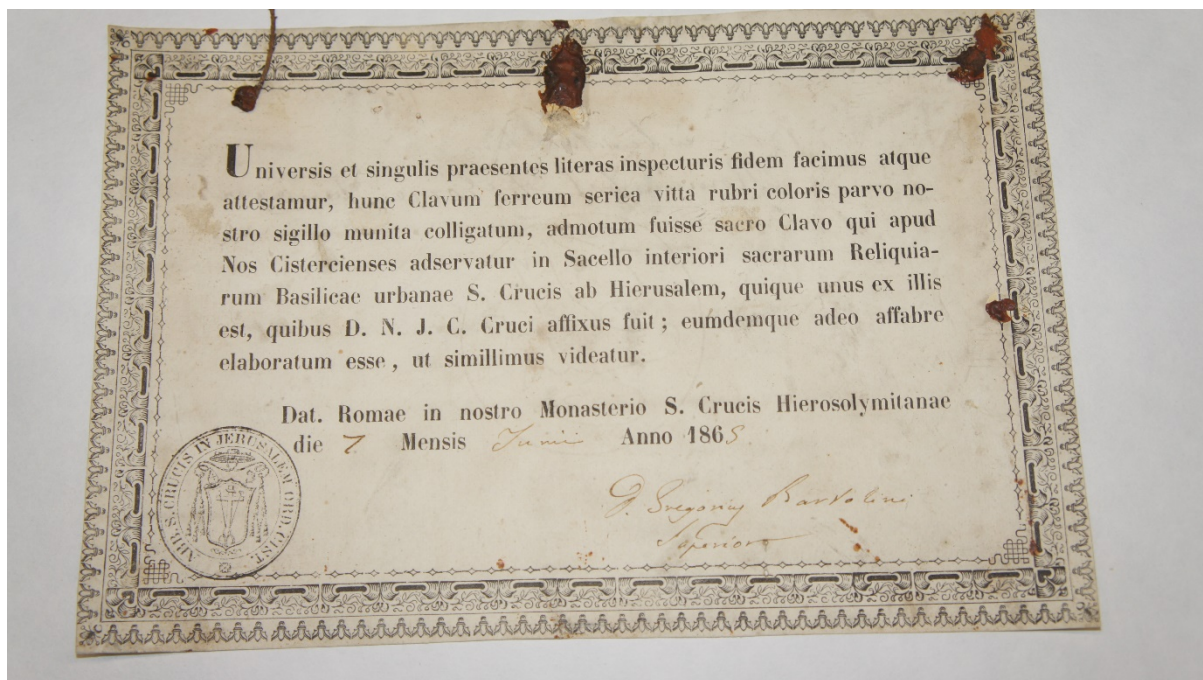 Universis et singulis praesentes literas inspecturis fidem facimus atque
attestamur, hunc Clavum ferreum serica vitta rubri coloris parvo no-
stro sigillo munita colligatum, admotum fuisse sacro Clavo qui apud
Nos Cistercienses adservatur in Sacello interiori sacrarum Reliquia-
rum Basilicae urbanae S. Crucis ab Hierusalem, quique unus ex illis
est, quibus D. N. J. C. Cruci affixus fuit ; eumdemque adeo affabre
elaboratum esse , ut simillimus videatur.
Dat. Romae in nostro Monasterio S. Crucis Hierosolymitanae
die 7 Mensis Junii Anno 1865.
D. Gregorius Bartolini
Superior
ABB. S. CRUCIS IN JERUSALEM ORD. CIST.